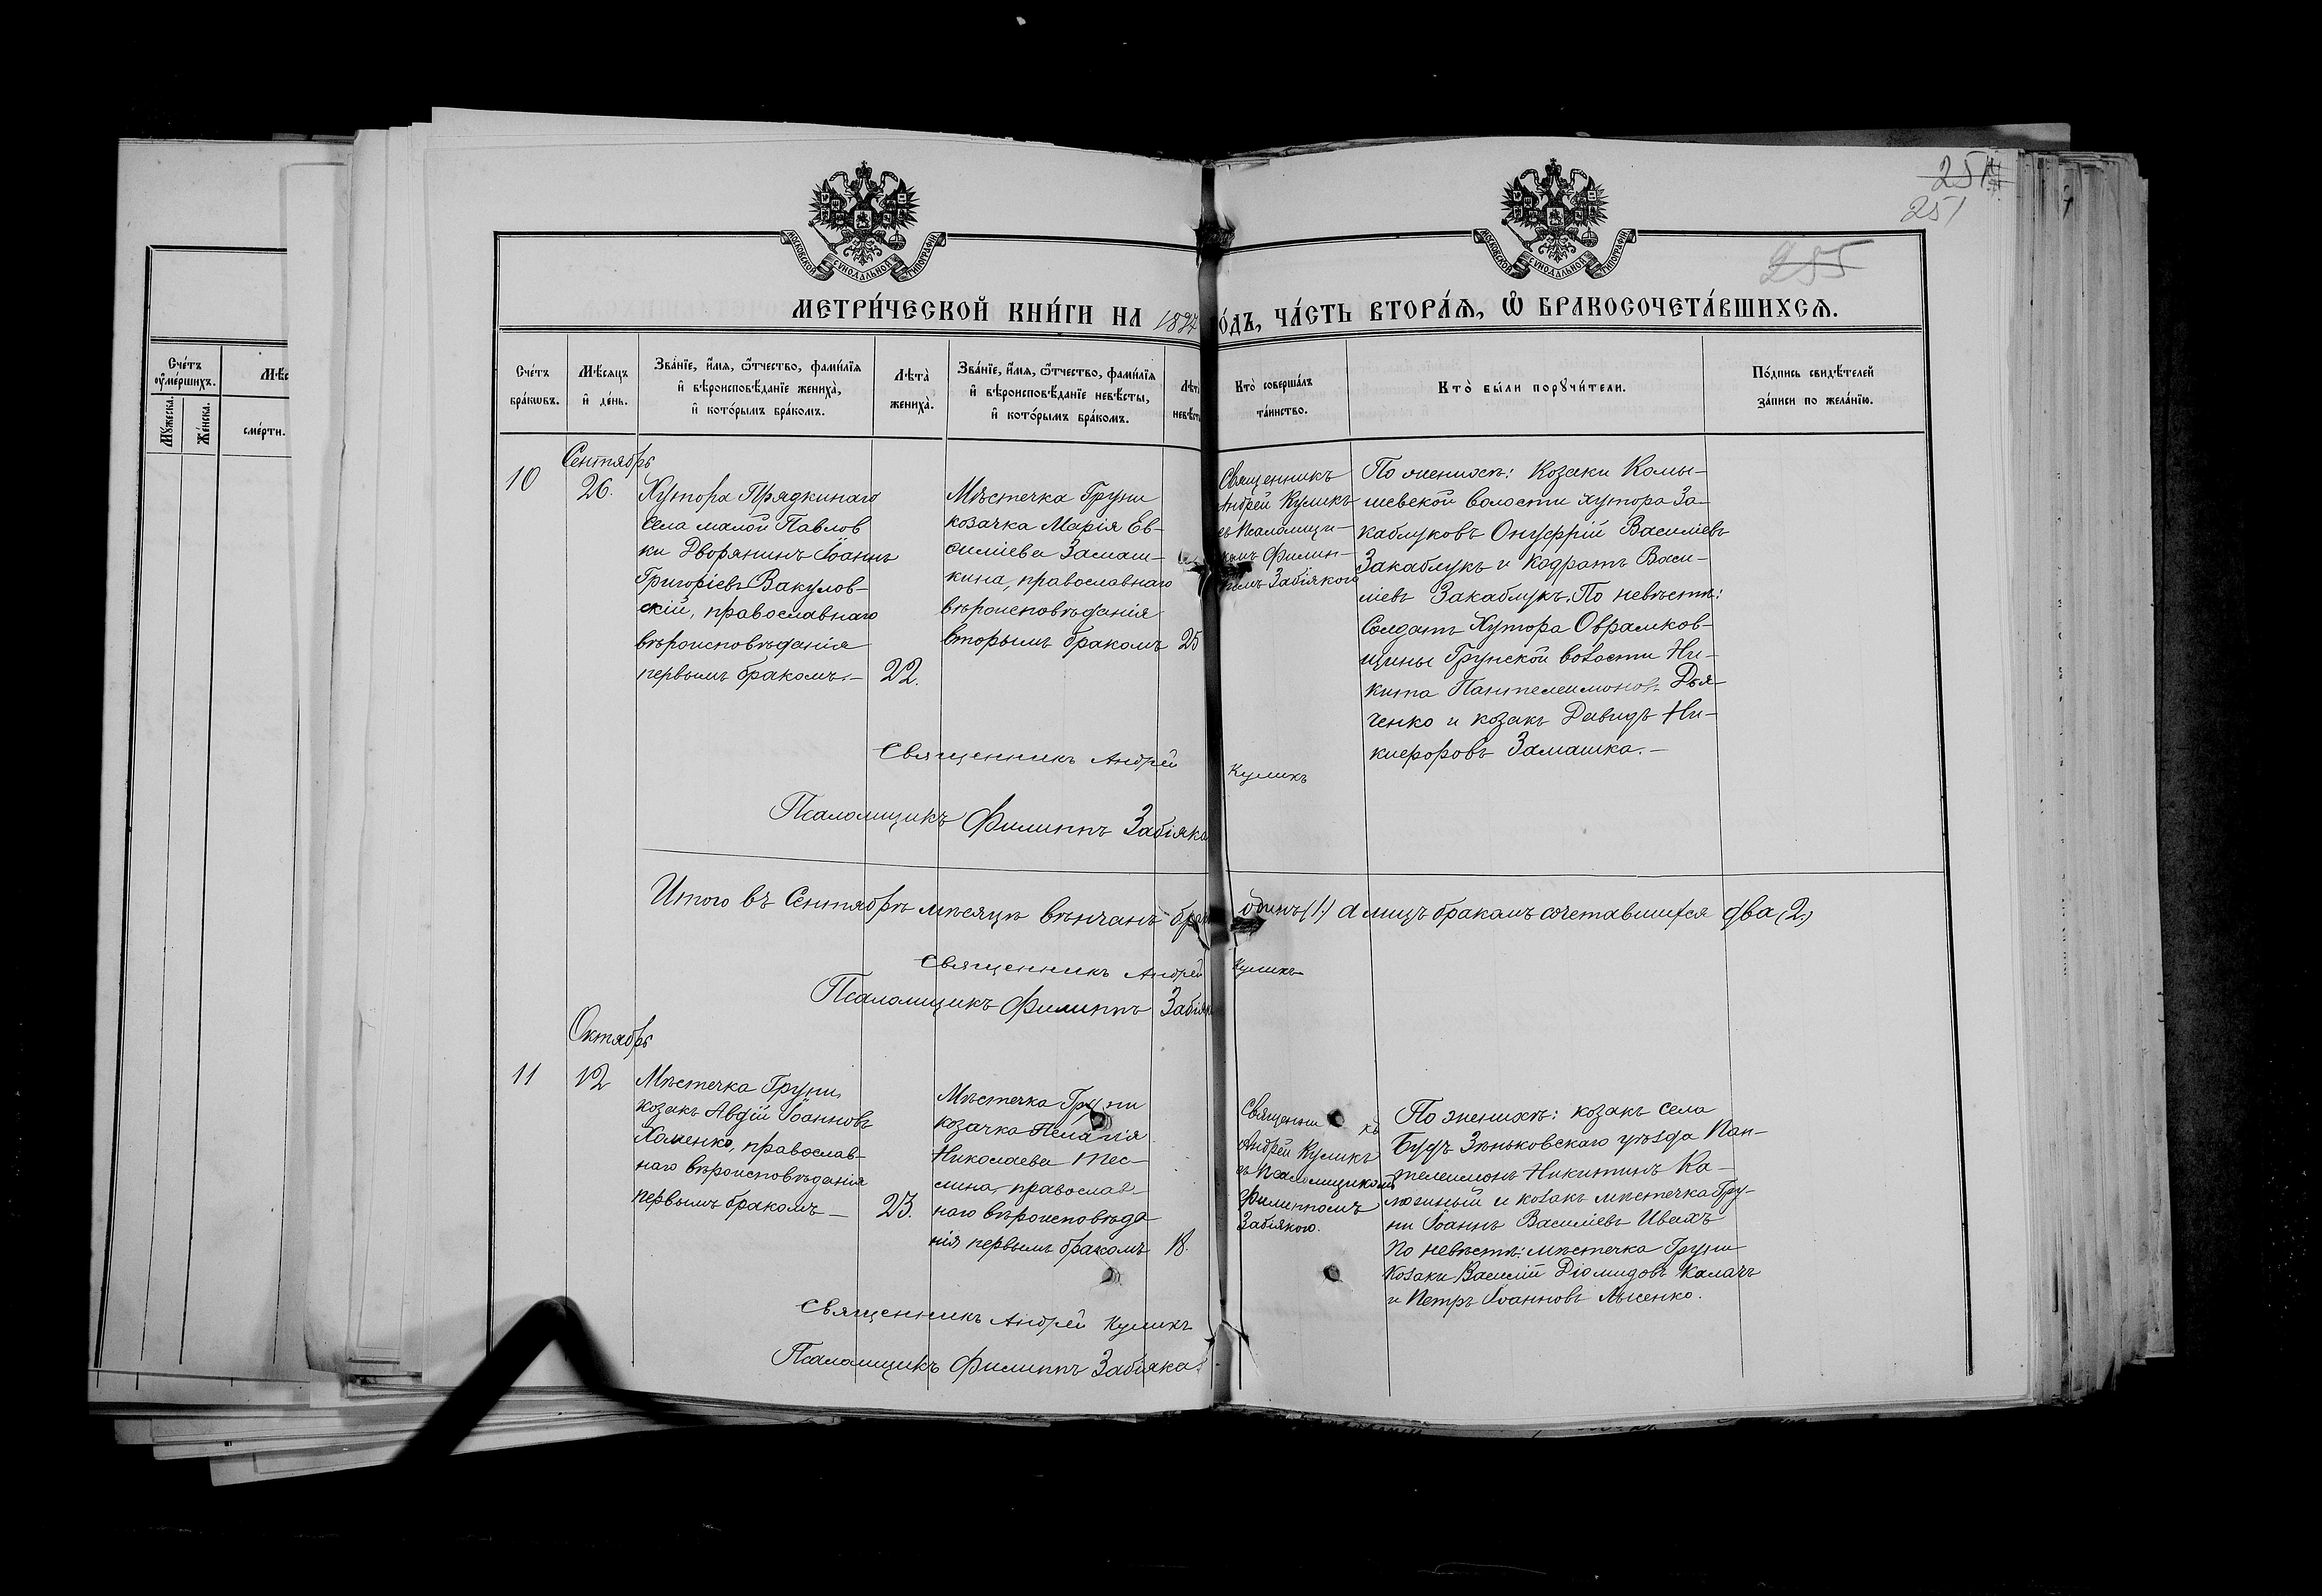 251
251
255
МОСКОВСКОЙ СѴНОДАЛЬНОЙ ТИПОГРАФІИ
МОСКОВСКОЙ СѴНОДАЛЬНОЙ ТИПОГРАФІИ
МЕТРИ́ЧЕСКОЙ КНИ́ГИ НА 1897 ГО́ДЪ, ЧА́СТЬ ВТОРА́Ѧ, Ѡ҆ БРАКОСОЧЕТА́ВШИХСѦ.
Сче́тъ ᲂу҆ме́ршихъ.
Мꙋ́жеска.
Же́нска.
сме́рти.
Сче́тъ бра́кѡвъ.
Мѣ́сѧцъ и҆ де́нь.
Зва́нїе, и҆́мѧ, ѻ҆́тчество, фами́лїѧ и҆ вѣроисповѣ́данїе жениха̀, и҆ кото́рымъ бра́комъ.
Лѣта̀ жениха̀.
Зва́нїе, и҆́мѧ, ѻ҆́тчество, фами́лїѧ и҆ вѣроисповѣ́данїе невѣ́сты, и҆ кото́рымъ бра́комъ.
Лѣта̀ невѣ́сты
Кто̀ соверша́лъ та́инство.
Кто̀ бы́ли порꙋчи́тели.
По́дпись свидѣ́телей за́писи по жела́нїю.
Сентябрь
10
26.
Хутора Прядкинаго
села малой Павлов
ки Дворянинъ Іоаннъ
Григоріевъ Вакулов-
скій, православнаго
вѣроисповѣданія
первымъ бракомъ.-
22.
Мѣстечка Груни
козачка Марія Ев-
силіева Замаш-
кина, православнаго
вѣроисповѣданія
вторымъ бракомъ
25
Священникъ
Андрей Куликъ
съ Псаломщи-
комъ Филип-
помъ Забіякою
По женихѣ: Козаки Камы-
шевской волости хутора За-
каблуковъ Онуфрій Василіевъ
Закаблукъ и Кодратъ Васи-
ліевъ Закаблукъ. По невѣстѣ:
Солдатъ Хутора Оврамков-
щины Грунской волости Ни-
кита Пантелеимоновъ Дья-
ченко и козакъ Давидъ Ни-
кифоровъ Замашка.-
Священникъ Андрей Куликъ
Псаломщикъ Филиппъ Забіяка
Итого въ Сентябрѣ мѣсяцѣ вѣнчанъ бракъ одинъ (1.) а лицъ бракомъ сочетавшихся два (2.)
Священникъ Андрей Куликъ
Псаломщикъ Филиппъ Забіяка
Октябрь
11
12
Мѣстечка Груни,
козакъ Авдій Іоанновъ
Хоменко, православ-
наго вѣроисповѣданія
первымъ бракомъ-
23.
Мѣстечка Груни
козачка Пелагія
Николаева Тес-
лина, православ-
наго вѣроисповѣда
нія, первымъ бракомъ
18.
Священникъ
Андрей Куликъ
съ Псаломщикомъ
Филиппомъ
Забіякою.
По женихѣ: козакъ села
Будъ Зѣньковскаго уѣзда Пан-
телеимонъ Никитинъ Ка-
люжный и козакъ мѣстечка Гру-
ни Іоаннъ Василіевъ Ивахъ
По невѣстѣ: мѣстечка Груни
Козаки Василій Діомидовъ Калачъ
и Петръ Іоанновъ Лысенко.
Священникъ Андрей Куликъ
Псаломщикъ Филиппъ Забіяка.